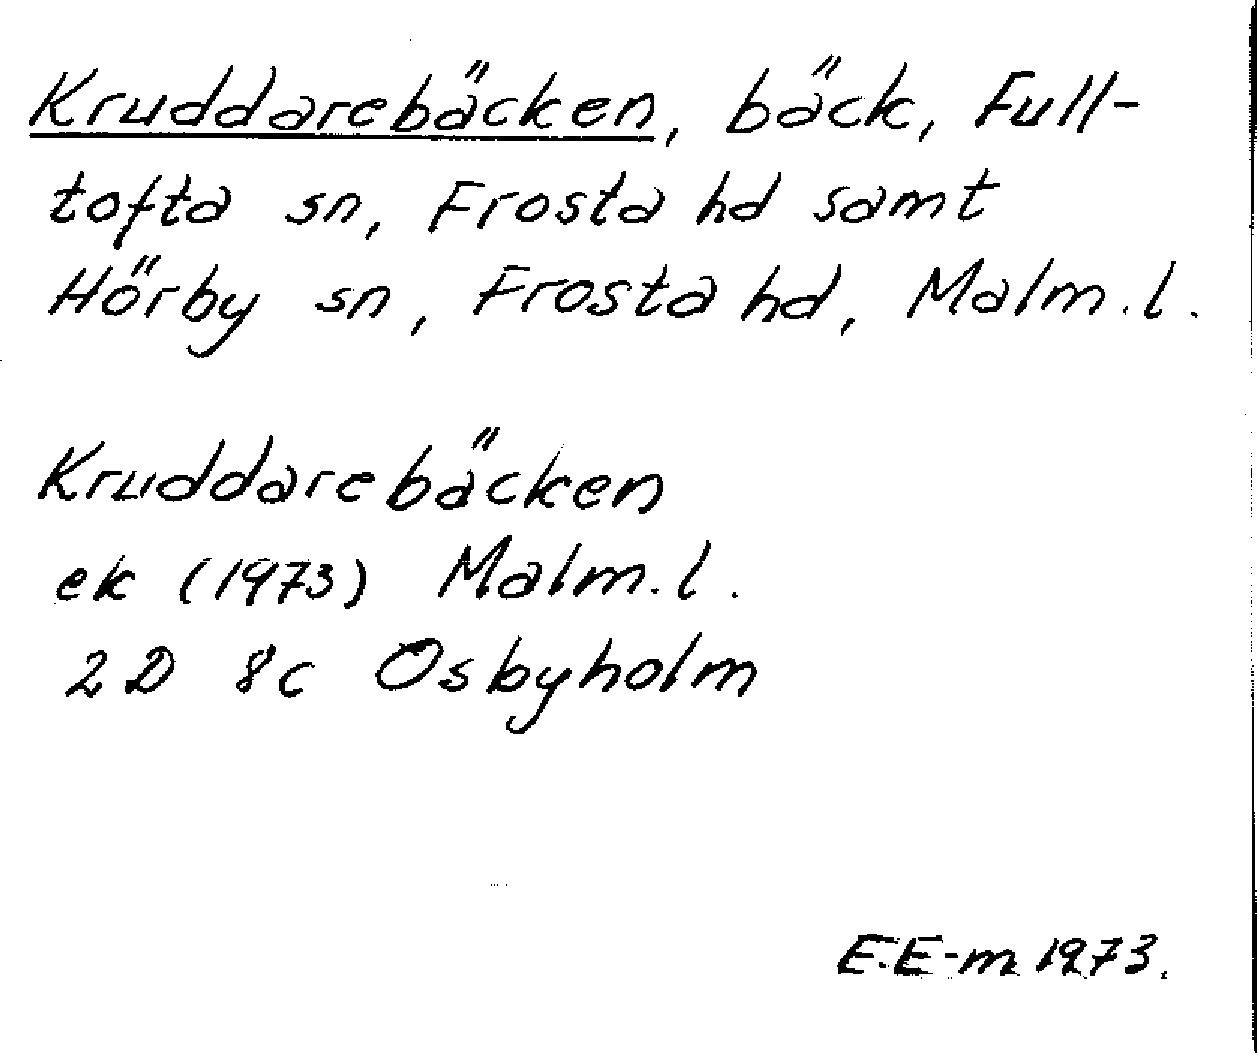 Kruddarebäcken, bäck, Full-
tofta sn, Frosta hd samt
Hörby sn, Frosta hd, Malm.l.
Kruddarebäcken
ek (1973) Malm.l.
2D 8c Osbyholm
E.E-m 1973.